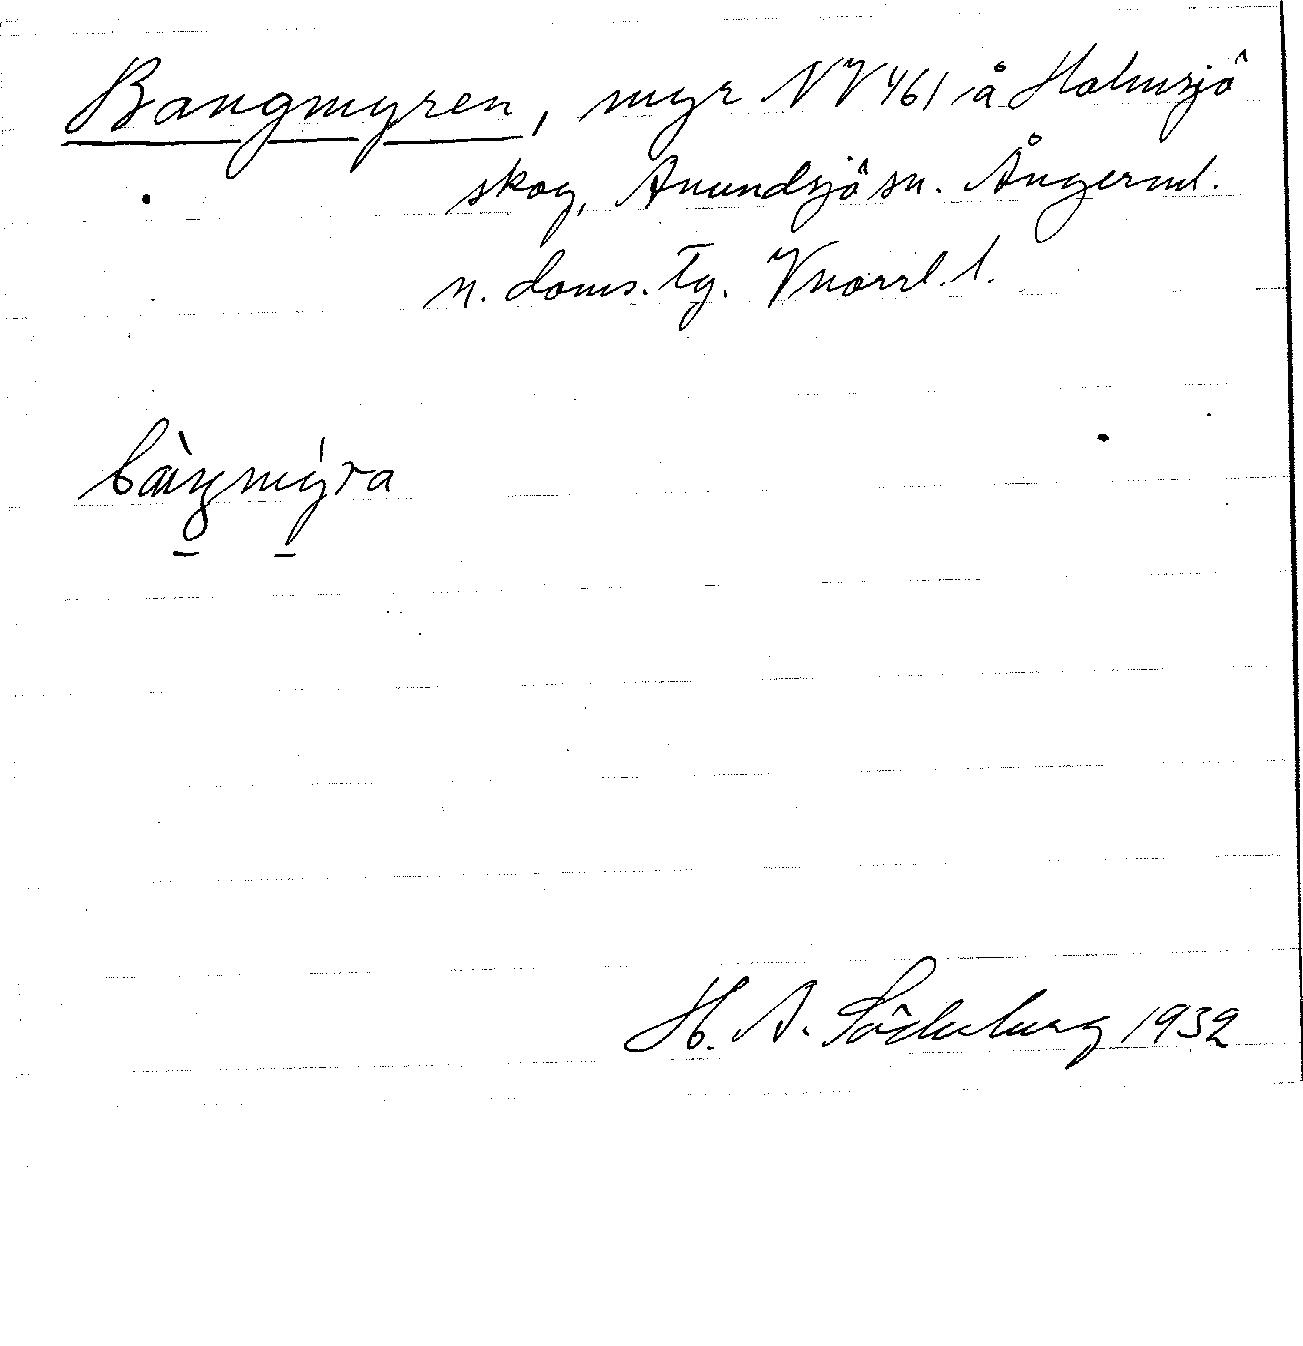 Bangmyren, myr NV 461 å Holmsjö
skog, Anundsjö sn. Ångerml.
n. doms. tg. Vnorrl. l.
bàŋmýra
H. A. Söderberg 1932